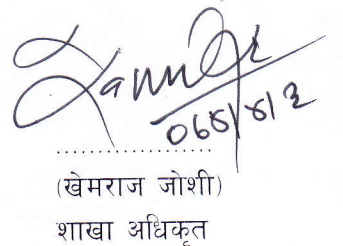 ०६५/४/३
..................
(खेमराज जोशी)
शाखा अधिकृत